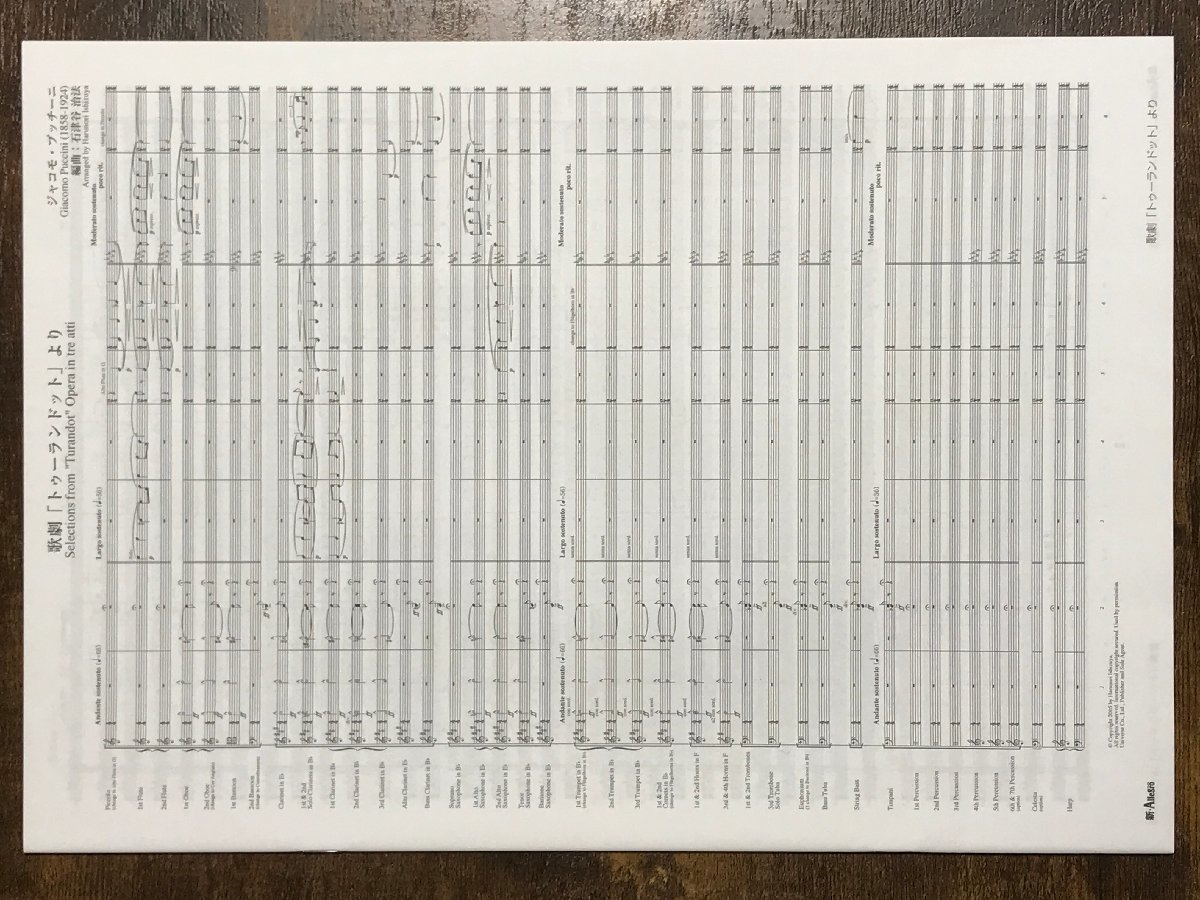 歌劇「トゥーランドット」より
Selections from "Turandot" Opera in tre atti
ジャコモ・プッチーニ
Giacomo Puccini (1858-1924)
編曲：石津谷 治法
Arranged by Harunori Ishizuya
Andante sostenuto (♩=66)
Largo sostenuto (♩=56)
Moderato sostenuto
poco rit.
Piccolo
1st Flute
2nd Flute
1st Oboe
2nd Oboe
1st Bassoon
2nd Bassoon
Clarinet in E♭
1st & 2nd
Solo Clarinets in B♭
1st Clarinet in B♭
2nd Clarinet in B♭
3rd Clarinet in B♭
Alto Clarinet in E♭
Bass Clarinet in B♭
Soprano
Saxophone in B♭
1st Alto
Saxophone in E♭
2nd Alto
Saxophone in E♭
Tenor
Saxophone in B♭
Baritone
Saxophone in E♭
Andante sostenuto (♩=66)
Largo sostenuto (♩=56)
Moderato sostenuto
poco rit.
1st Trumpet in B♭
2nd Trumpet in B♭
3rd Trumpet in B♭
1st & 2nd
Cornets in B♭
1st & 2nd Horns in F
3rd & 4th Horns in F
1st & 2nd Trombones
3rd Trombone
Solo Tuba
Euphonium
Bass Tuba
String Bass
Andante sostenuto (♩=66)
Largo sostenuto (♩=56)
Moderato sostenuto
poco rit.
Timpani
1st Percussion
2nd Percussion
3rd Percussion
4th Percussion
5th Percussion
6th & 7th Percussion
Celesta
Harp
© Copyright 2002 by Harunori Ishizuya.
All rights reserved. International copyright secured. Used by permission.
Universe Co., Ltd.: Publisher and Sole Agent.
歌劇「トゥーランドット」より